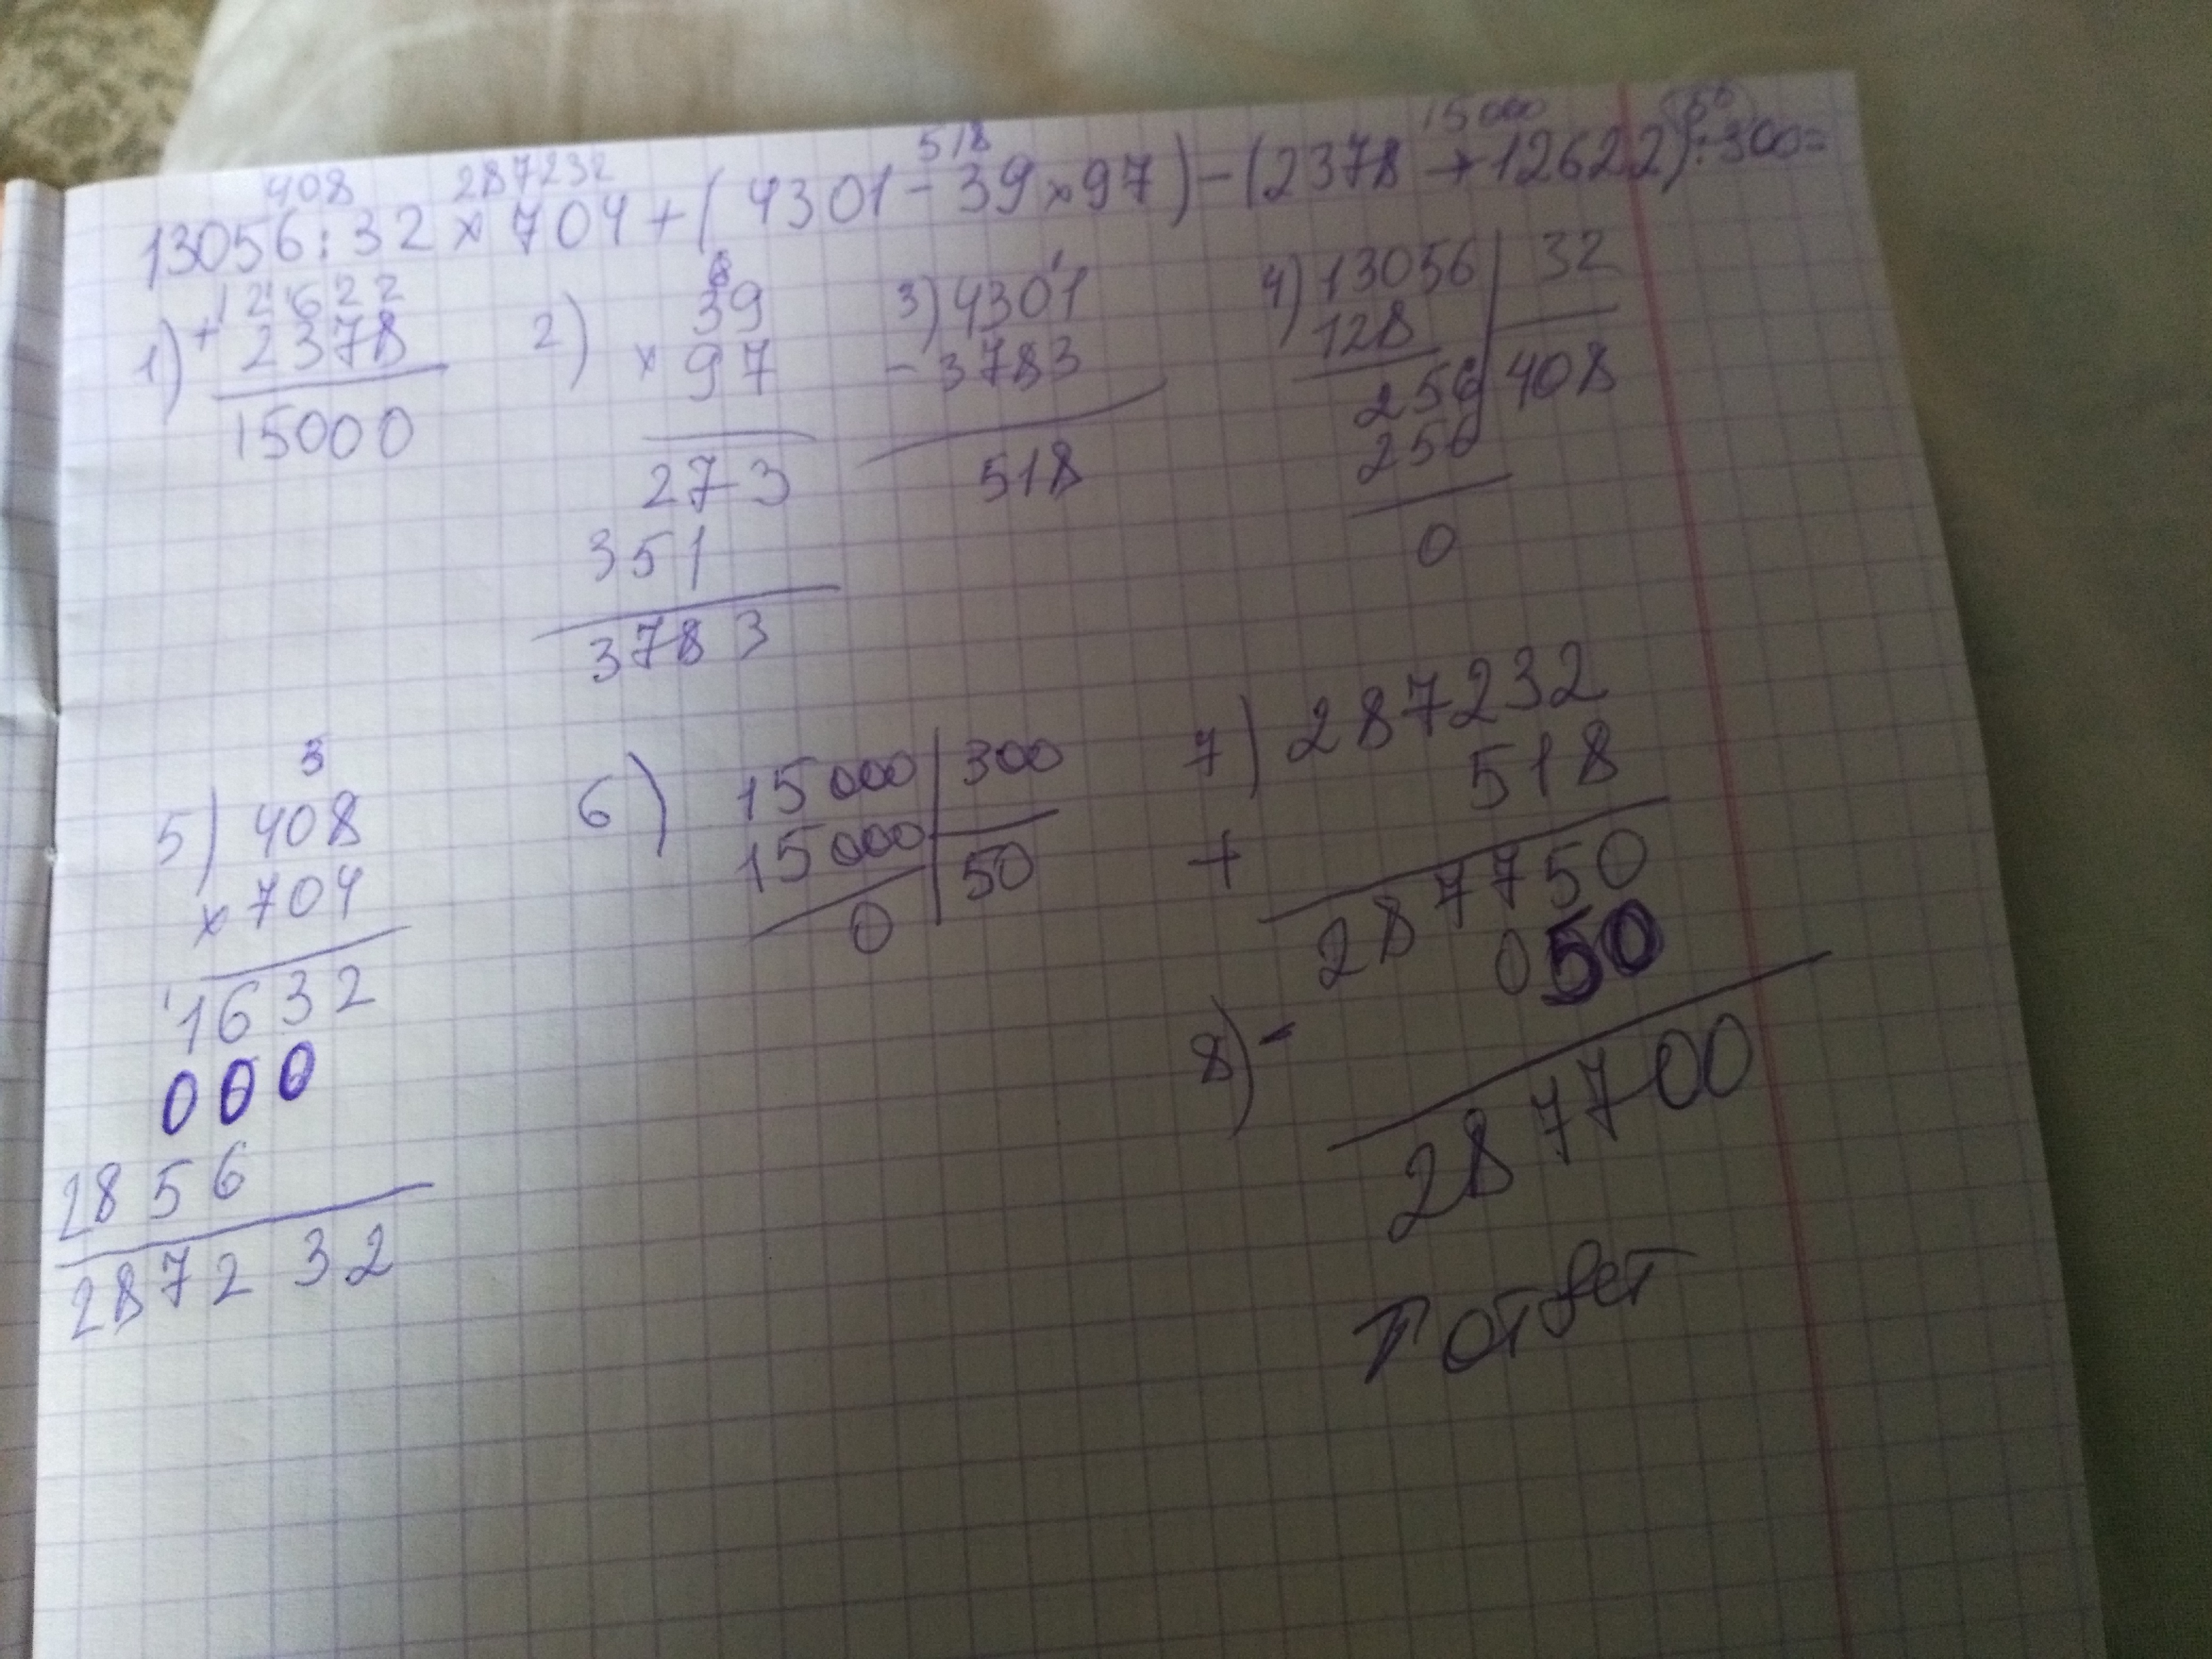 408 287232 518 15000 50
13056:32×704+(4301-39×97)-(2378+12622):300=
1) +12622
2378
15000
2) 6
39
×97
273
351
3783
3) 4301
-3783
518
4) 13056 32
128
256 408
256
0
5) 3
408
×704
1632
000
2856
287232
6) 15000 300
15000 50
0
7) 287232
518
+
287750
050
8) -
287700
↑ ответ